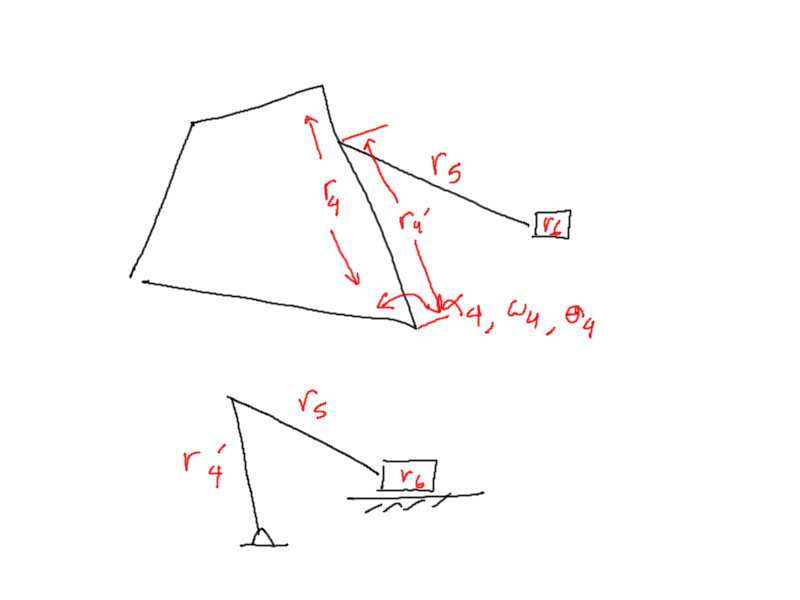 r5
r4
r4'
r6
α4, ω4, θ4
r5
r4'
r6